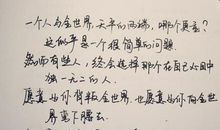 一个人与全世界，天平的两端，哪个更重？
这似乎是一个很简单的问题
然而有些人，总会选择那个在自己心目中
独一无二的人
愿意为你背叛全世界，也愿意为你向全世
界